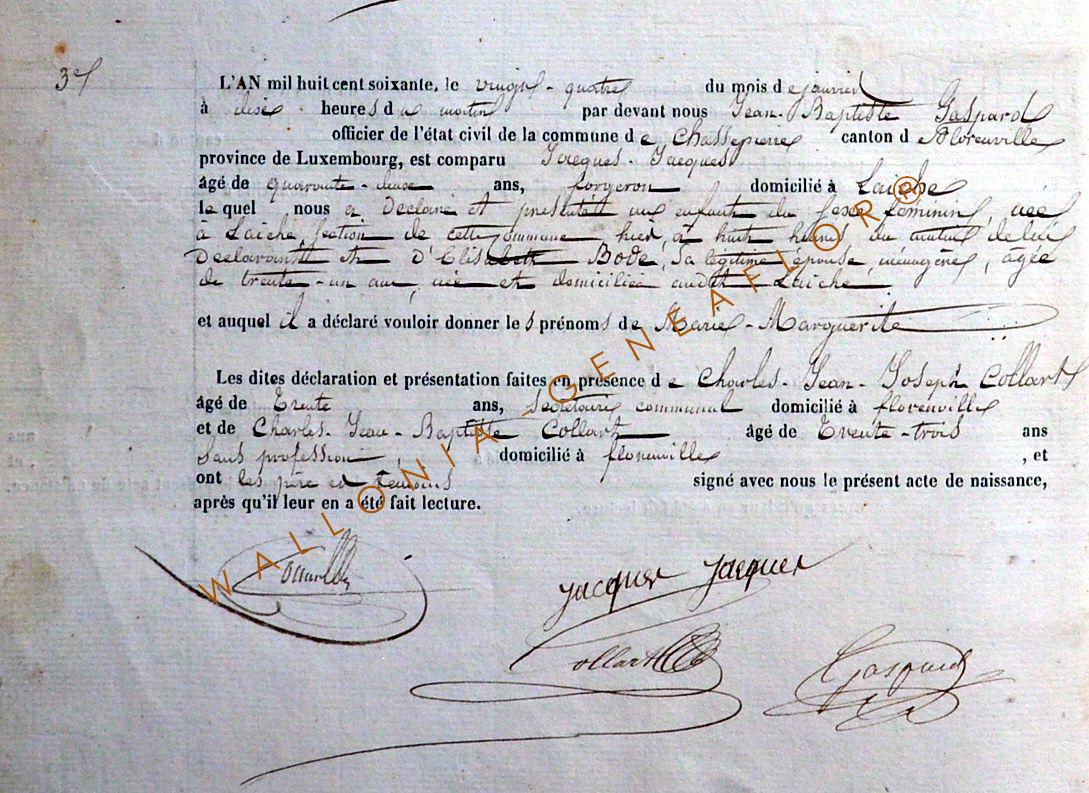 37
L'AN mil huit cent soixante, le vingt-quatre du mois de janvier
à dix heures du matin par devant nous Jean-Baptiste Gaspard
officier de l'état civil de la commune de Chassepierre canton de Florenville
province de Luxembourg, est comparu Jacques Jacques
âgé de quarante-deux ans, forgeron domicilié à Laiche
lequel nous a déclaré et présenté un enfant du sexe féminin, née
à Laiche, section de cette commune, hier, à huit heures du matin, de lui
déclarant et d'Elisabeth Bode, sa légitime épouse, ménagère, âgée
de trente-un ans, née et domiciliée audit Laiche,
et auquel il a déclaré vouloir donner les prénoms de Marie-Marguerite
Les dites déclaration et présentation faites en présence de Charles-Jean-Joseph Collart
âgé de Trente ans, secrétaire communal domicilié à florenville
et de Charles-Jean-Baptiste Collart âgé de Trente-trois ans
sans profession, domicilié à florenville, et
ont les père et témoins signé avec nous le présent acte de naissance,
après qu'il leur en a été fait lecture.
Jacques Jacques
Collart
Gaspard
WALLONIA GENEAFLOR ®